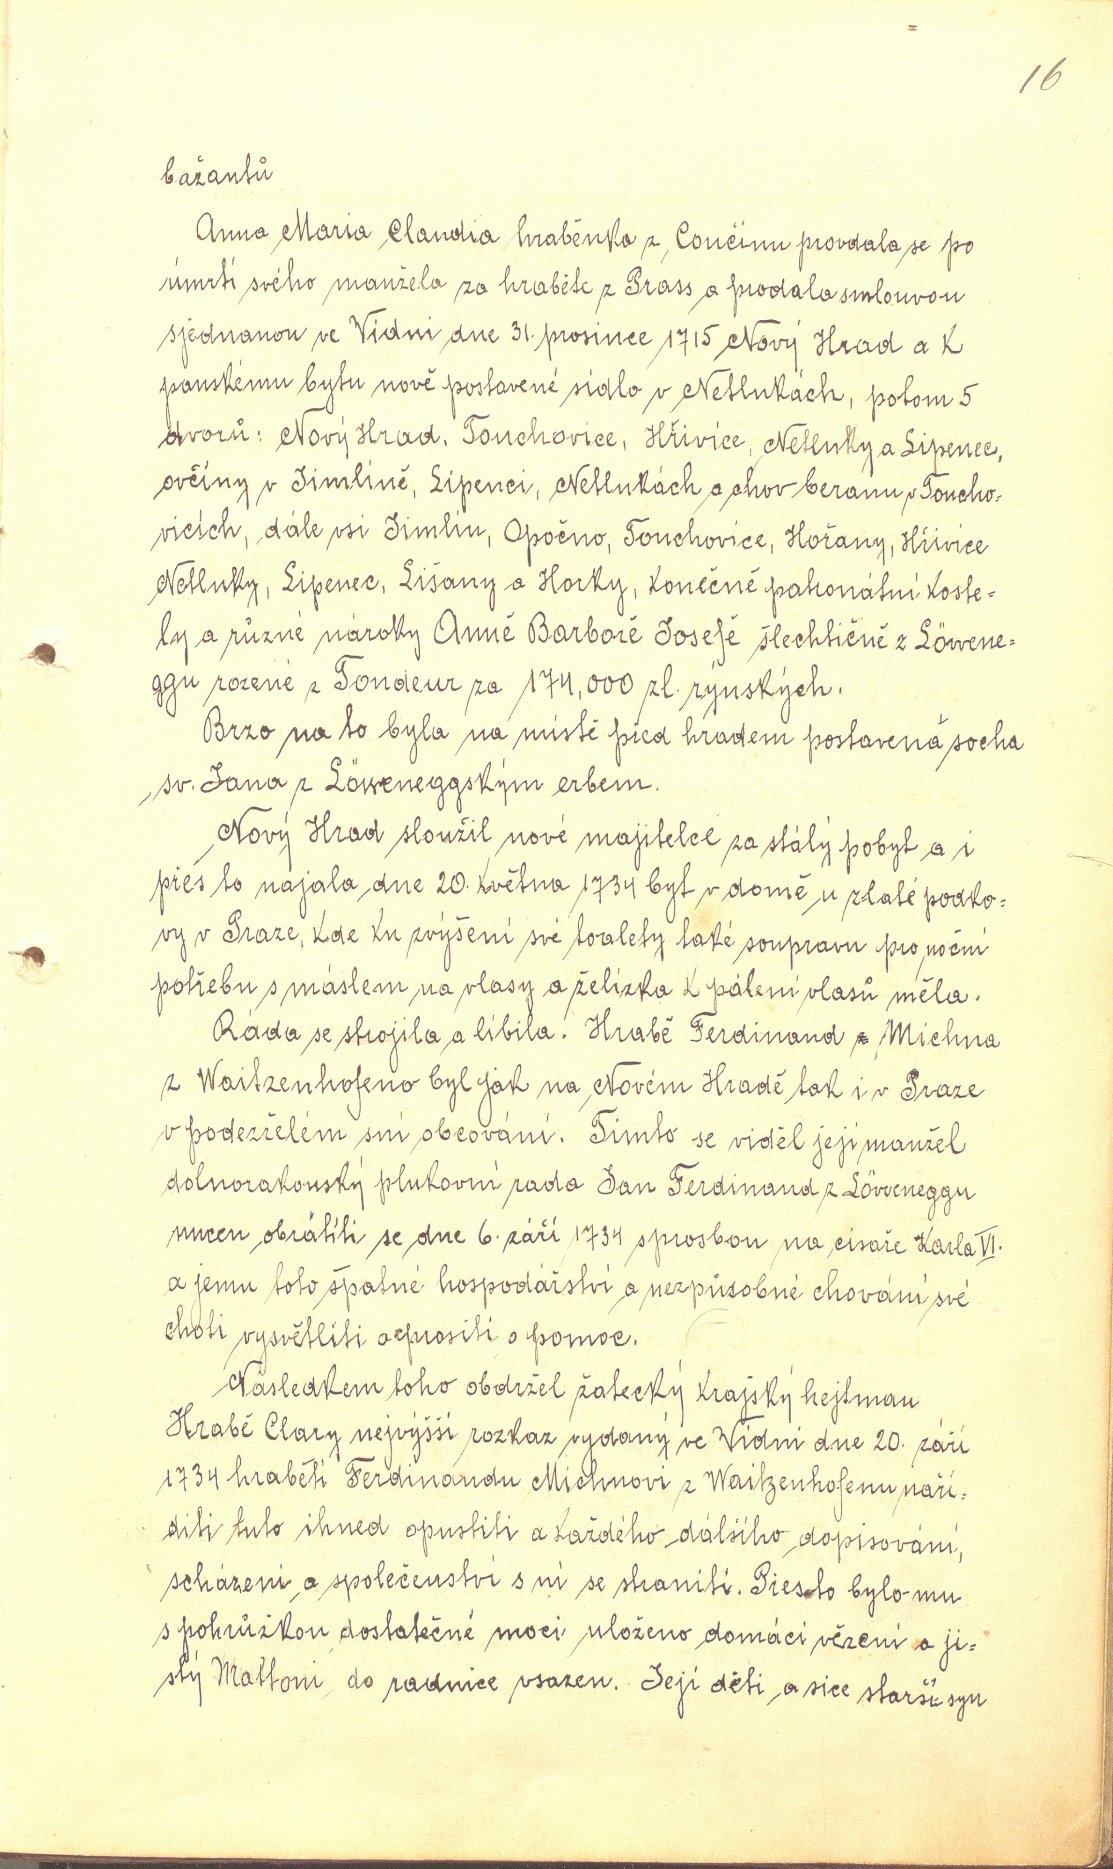 16
bažantů
Anna Maria Claudia hraběnka z Coučinu provdala se po
úmrtí svého manžela za hraběte z Prass a prodala smlouvou
sjednanou ve Vídni dne 31. prosince 1715 Nový Hrad a k
panskému bytu nově postavené sídlo v Netlukách, potom 5
dvorů: Nový Hrad, Touchovice, Hřivice, Netluky a Lipenec,
ovčíny v Jimlíně, Lipenci, Netlukách a chov beranu v Toucho=
vicích, dále vsi Jimlín, Opočno, Touchovice, Hořany, Hřivice
Netluky, Lipenec, Lišany a Horky, konečně patronátní koste=
ly a různé nároky Anně Barboře Josefě šlechtičně z Löwene=
ggu rozené z Tondeur za 174,000 zl. rýnských.
Brzo na to byla na místě před hradem postavená socha
sv. Jana z Löweneggským erbem.
Nový Hrad sloužil nové majitelce za stálý pobyt a i
přes to najala dne 20. května 1734 byt v domě u zlaté podko=
vy v Praze, kde ku zvýšení své toalety také soupravu pro noční
potřebu s máslem na vlasy a želízka k pálení vlasů měla.
Ráda se strojila a líbila. Hrabě Ferdinand z Michna
z Waitzenhofeno byl jak na Novém Hradě tak i v Praze
v podezřelém sní obcování. Tímto se viděl její manžel
dolnorakouský plukovní rada Jan Ferdinand z Löweneggu
nucen obrátiti se dne 6. září 1734 sprosbou na císaře Karla VI.
a jemu toto špatné hospodářství a nezpůsobné chování své
choti vysvětliti a prositi o pomoc.
Následkem toho obdržel žatecký krajský hejtman
Hrabě Clary nejvýšší rozkaz vydaný ve Vídni dne 20. září
1734 hraběti Ferdinandu Michnovi z Waitzenhofenu naří=
diti tuto ihned opustiti a každého dálšího dopisování,
scházení a společenství s ní se straniti. Přesto bylo mu
s pohrůžkou dostatečné moci uloženo domácí vězení a ji=
stý Mattoni do radnice vsazen. Její děti, a sice starší syn